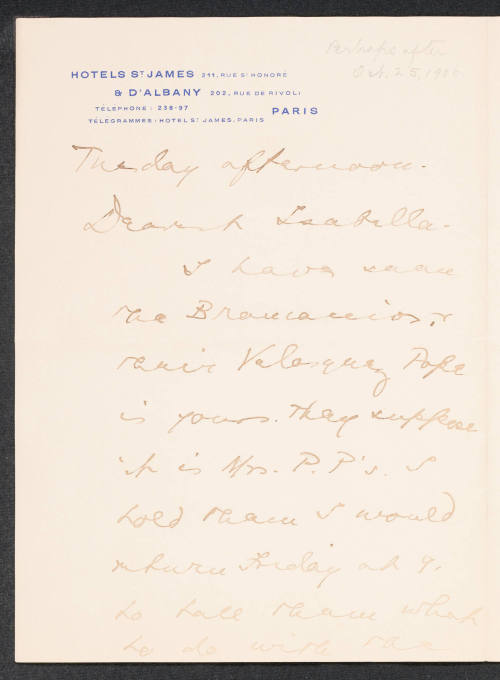 Perhaps after
Oct. 25, 1906
HOTELS ST JAMES 211, RUE ST HONORÉ
& D'ALBANY 202, RUE DE RIVOLI
TÉLÉPHONE: 238-97 PARIS
TÉLÉGRAMMES: HOTEL ST JAMES, PARIS
Tuesday afternoon.
Dearest Isabella.
I have seen
the Brancaccios, &
their Velasquez Pope
is yours. They suppose
it is Mrs. P.P's. I
told them I would
return Friday at 4.
to tell them what
to do with the